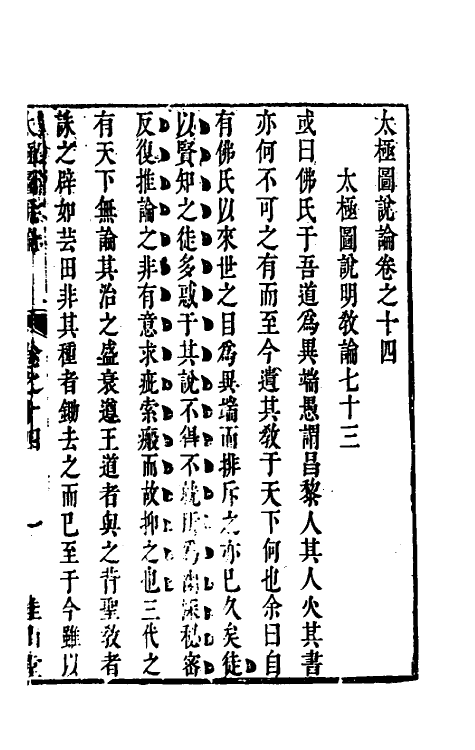 太極圖說論卷之十四
太極圖說明敎論七十三
或曰佛氏于吾道爲異端愚謂昌黎人其人火其書
亦何不可之有而至今遺其敎于天下何也余曰自
有佛氏以來世之目爲異端而排斥之亦已久矣徒
以賢知之徒多惑于其說不得不就所爲幽深秘密
反復推論之非有意求疵索瘢而故抑之也三代之
有天下無論其治之盛衰遵王道者與之背聖敎者
誅之辟如芸田非其種者鋤去之而已至于今雖以
太極圖說論 卷之十四 一